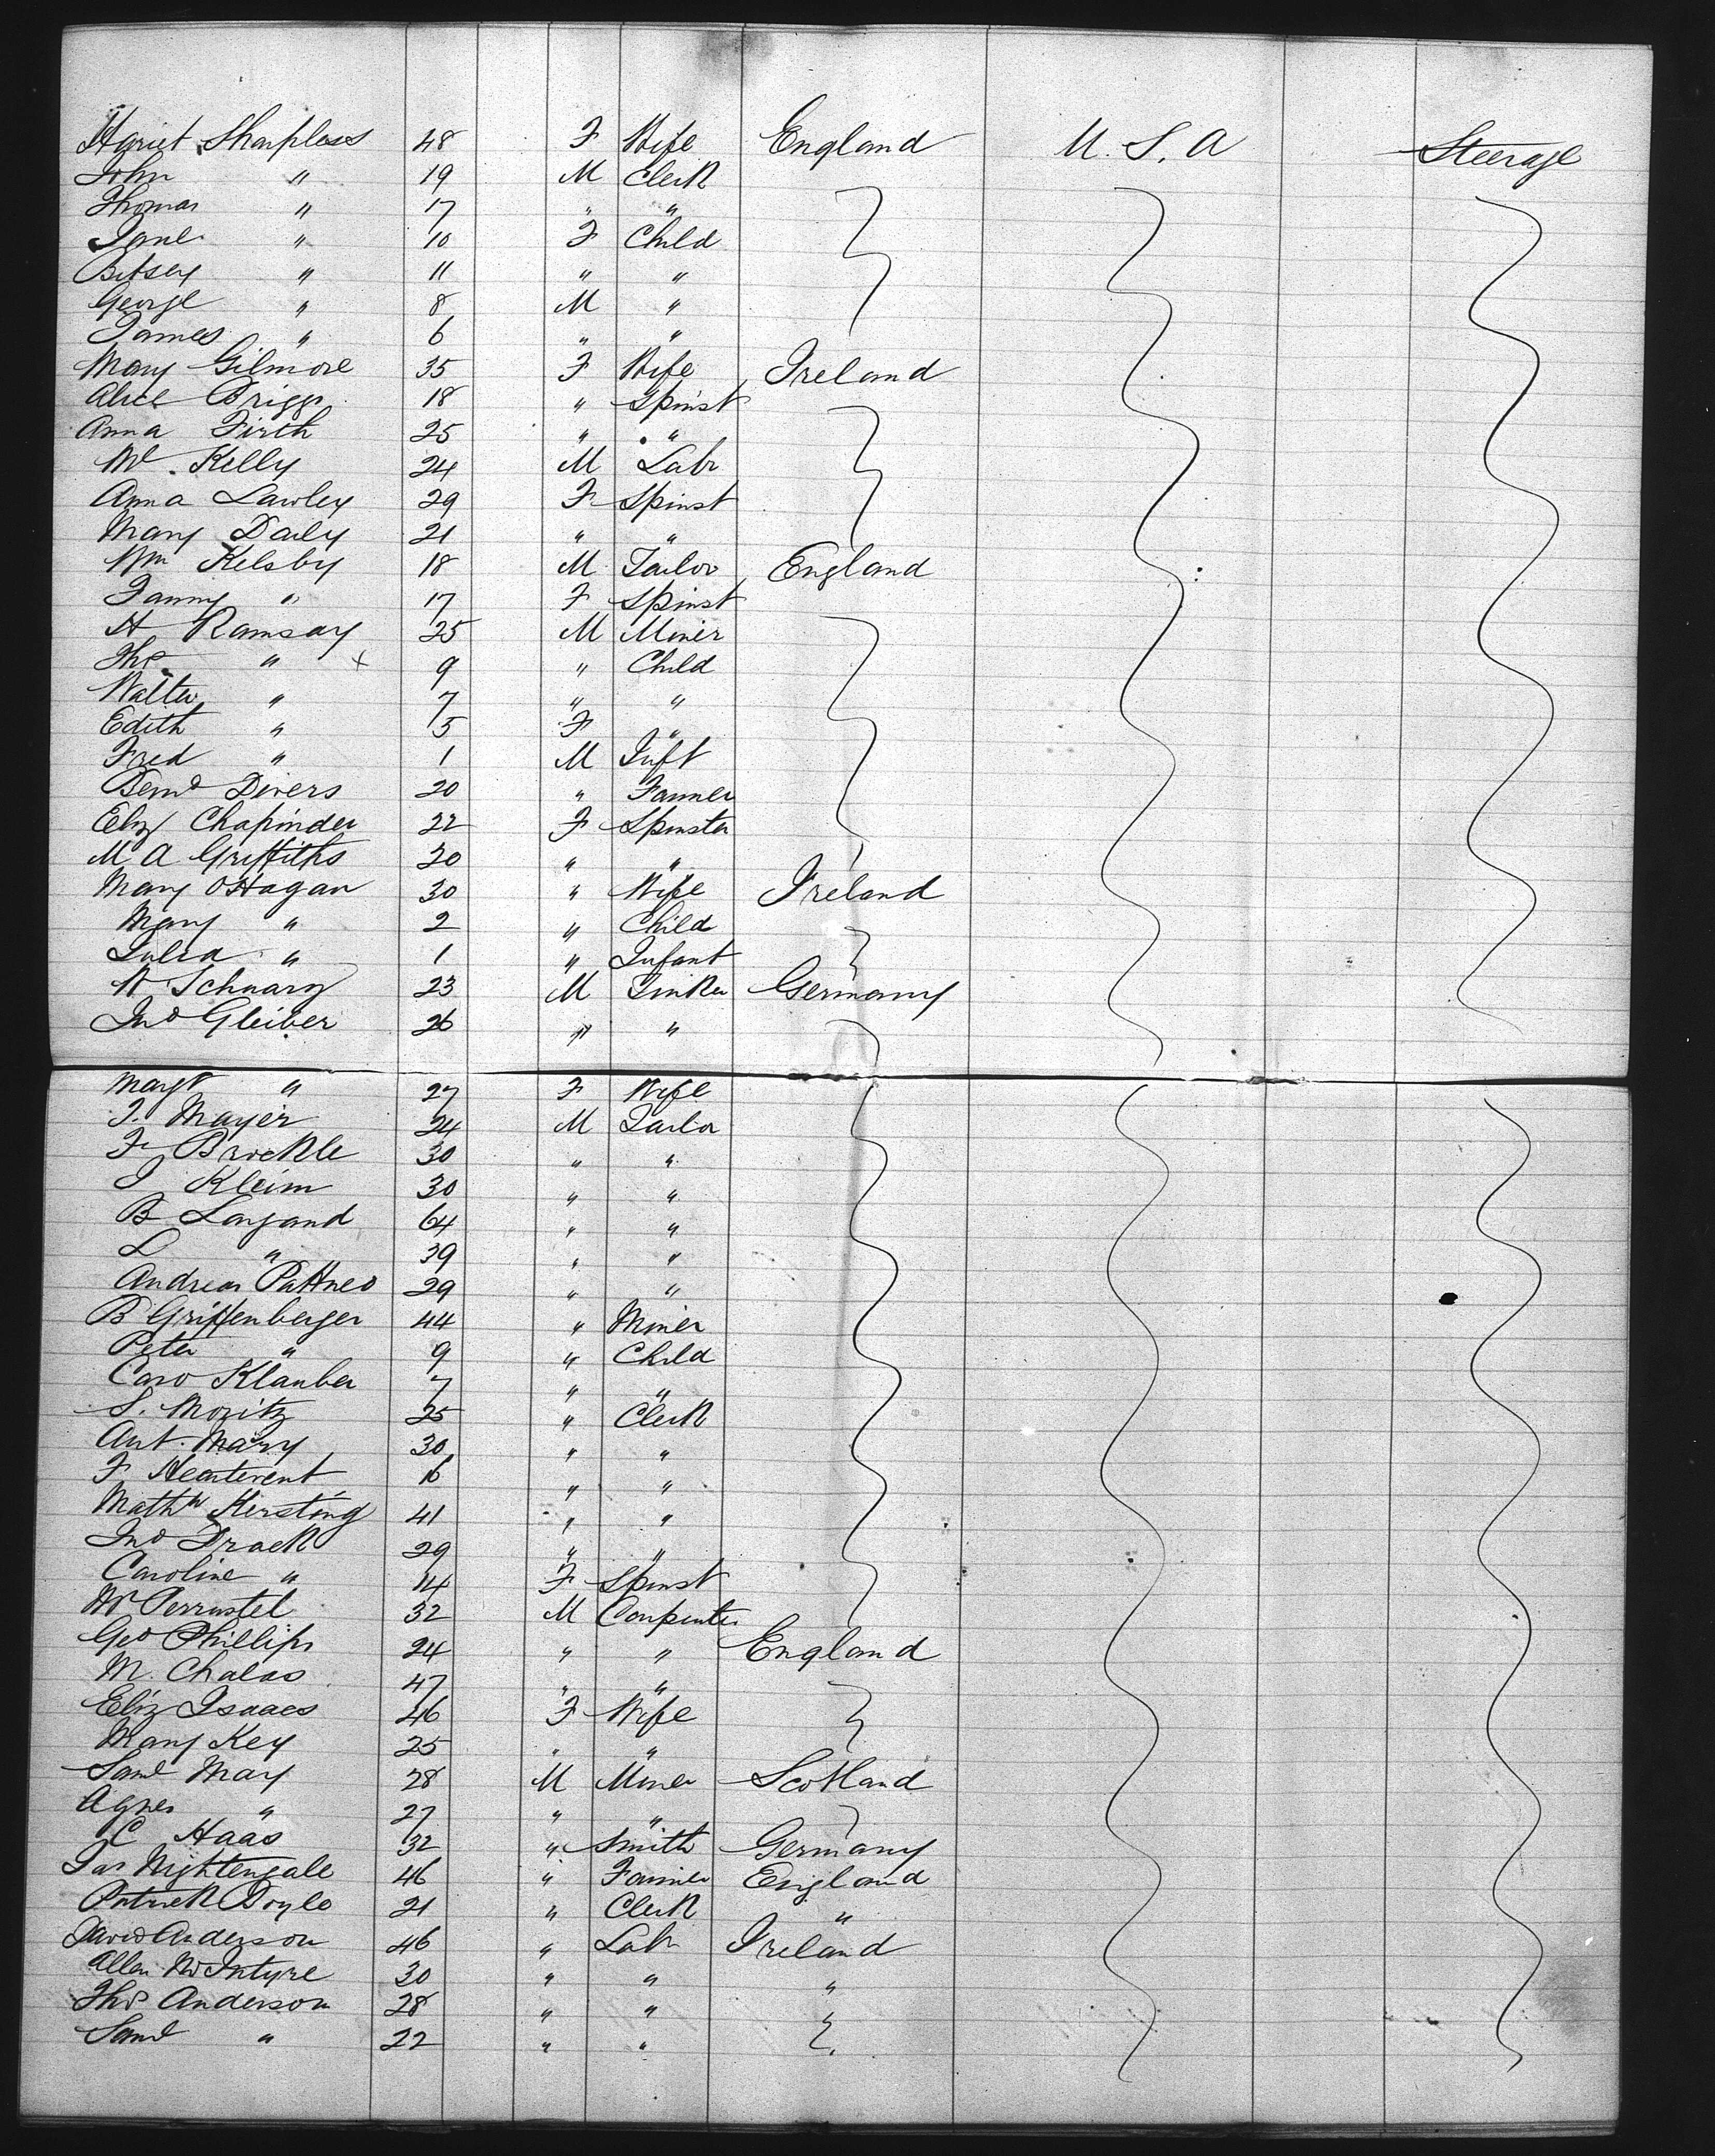 Hariet Sharpless 48 F Wife England U. S. A Steerage
John " 19 M Clerk
Thomas " 17 " "
Jane " 10 F Child
Betsey " 11 " "
George " 8 M "
James " 6 " "
Mary Gilmore 35 F Wife Ireland
Alice Briggs 18 " Spinst
Anna Firth 25 " "
Kelly 24 M Labr
Anna Lawley 29 F Spinst
Mary Daily 21 " "
Wm Kelsby 18 M Tailor England
Fanny " 17 F Spinst
H Ramsay 25 M Miner
Thos " x 9 " Child
Walter " 7 " "
Edith " 5 F "
Fred " 1 M Inft
Bernd Divers 20 " Farmer
Eliz Chapinder 22 F Spinster
M A Griffiths 20 " "
Mary OHagan 30 " Wife Ireland
Mary " 2 " Child
Julia " 1 " Infant
Schwarz 23 M Tinker Germany
Jno Gleiber 26 " "
Margt " 27 F Wife
J. Mayer 24 M Tailor
F Brockle 30 " "
J Kleim 30 " "
B Langand 64 " "
L " 39 " "
Andreas 29 " "
B Griffenberger 44 " Miner
Peter " 9 " Child
Caro Klauber 7 " "
S. Moritz 25 " Clerk
Ant. Mary 30 " "
F 16 " "
Mathw Kersting 41 " "
Jno Drack 29 " "
Caroline " 14 F Spinst
Perrustel 32 M Carpenter
Geo Phillips 24 " " England
M. Chalas 47 " "
Eliz Isaacs 46 F Wife
Mary Key 25 " "
Saml May 28 M Miner Scotland
Agnes " 27 " "
C Haas 32 " Smith Germany
Jas Nightengale 46 " Farmer England
Patrick Doyle 21 " Clerk "
David Anderson 46 " Labr Ireland
Allen McIntyre 30 " " "
Thos Anderson 28 " "
Saml " 22 " "